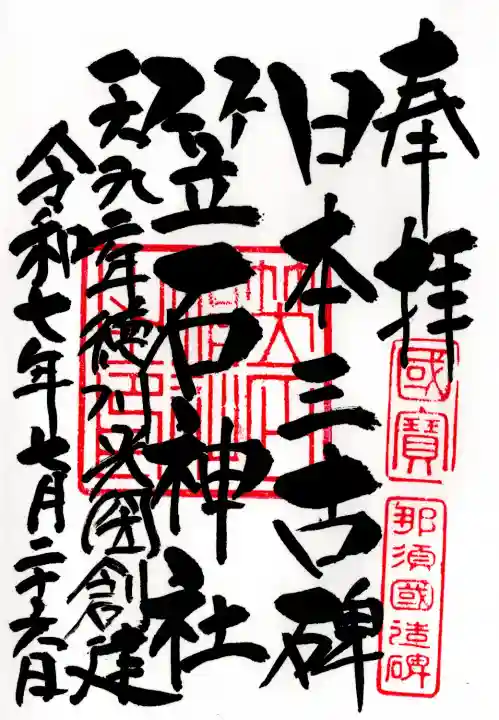 奉拝
國寶
那須國造碑
日本三古碑
笠石神社
年徳川光圀創建
令和七年七月二十六日